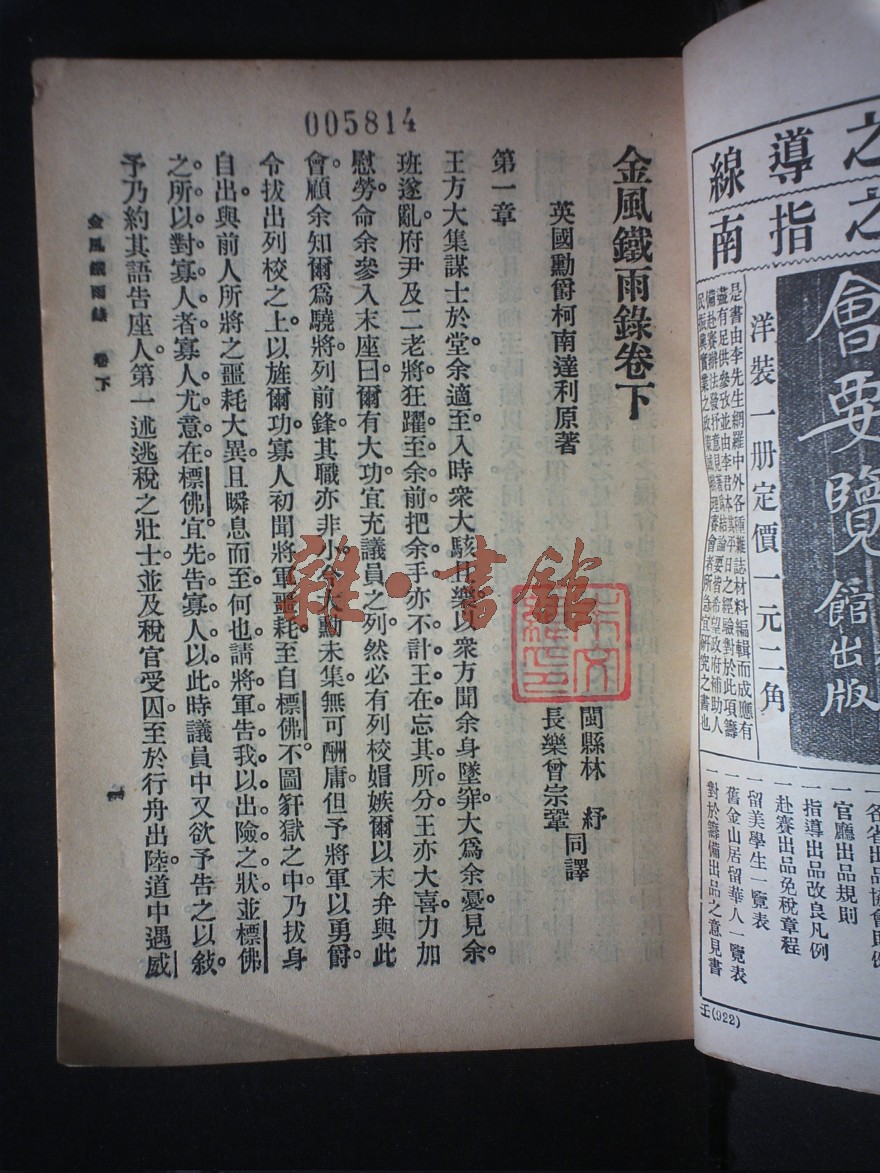 005814
金風鐵雨錄卷下
英國勳爵柯南達利原著
閩縣林紓
長樂曾宗鞏
同譯
第一章
王方大集謀士於堂。余適至。入時衆大駭且樂。以衆方聞余身墜穽。大爲余憂。見余。
班遂亂。府尹及二老將狂躍至余前把余手。亦不計王在。忘其所分。王亦大喜。力加
慰勞。命余參入末座。曰。爾有大功。宜充議員之列。然必有列校媢嫉爾以末弁與此
會。顧余知爾爲驍將。列前鋒。其職亦非小。今大勳未集。無可酬庸。但予將軍以勇爵。
令拔出列校之上。以旌爾功。寡人初聞將軍噩耗。至自標佛。不圖豻獄之中。乃拔身
自出。與前人所將之噩耗大異。且瞬息而至。何也。請將軍告我以出險之狀。並標佛
之所以對寡人者。寡人尤意在標佛。宜先告寡人以此。時議員中又欲予告之以敍。
予乃約其語告座人。第一述逃稅之壯士。並及稅官受囚。至於行舟出陸。道中遇威
金風鐵雨錄 卷下
一
雜·書館
之導線
之指南
會要覽
館出版
洋裝一册定價一元二角
是書由李先生網羅中外各種雜誌材料編輯而成應有
官廳出品規則
指導出品改良凡例
赴賽出品免稅章程
留美學生一覽表
舊金山居留華人一覽表
對於籌備出品之意見書
壬(922)